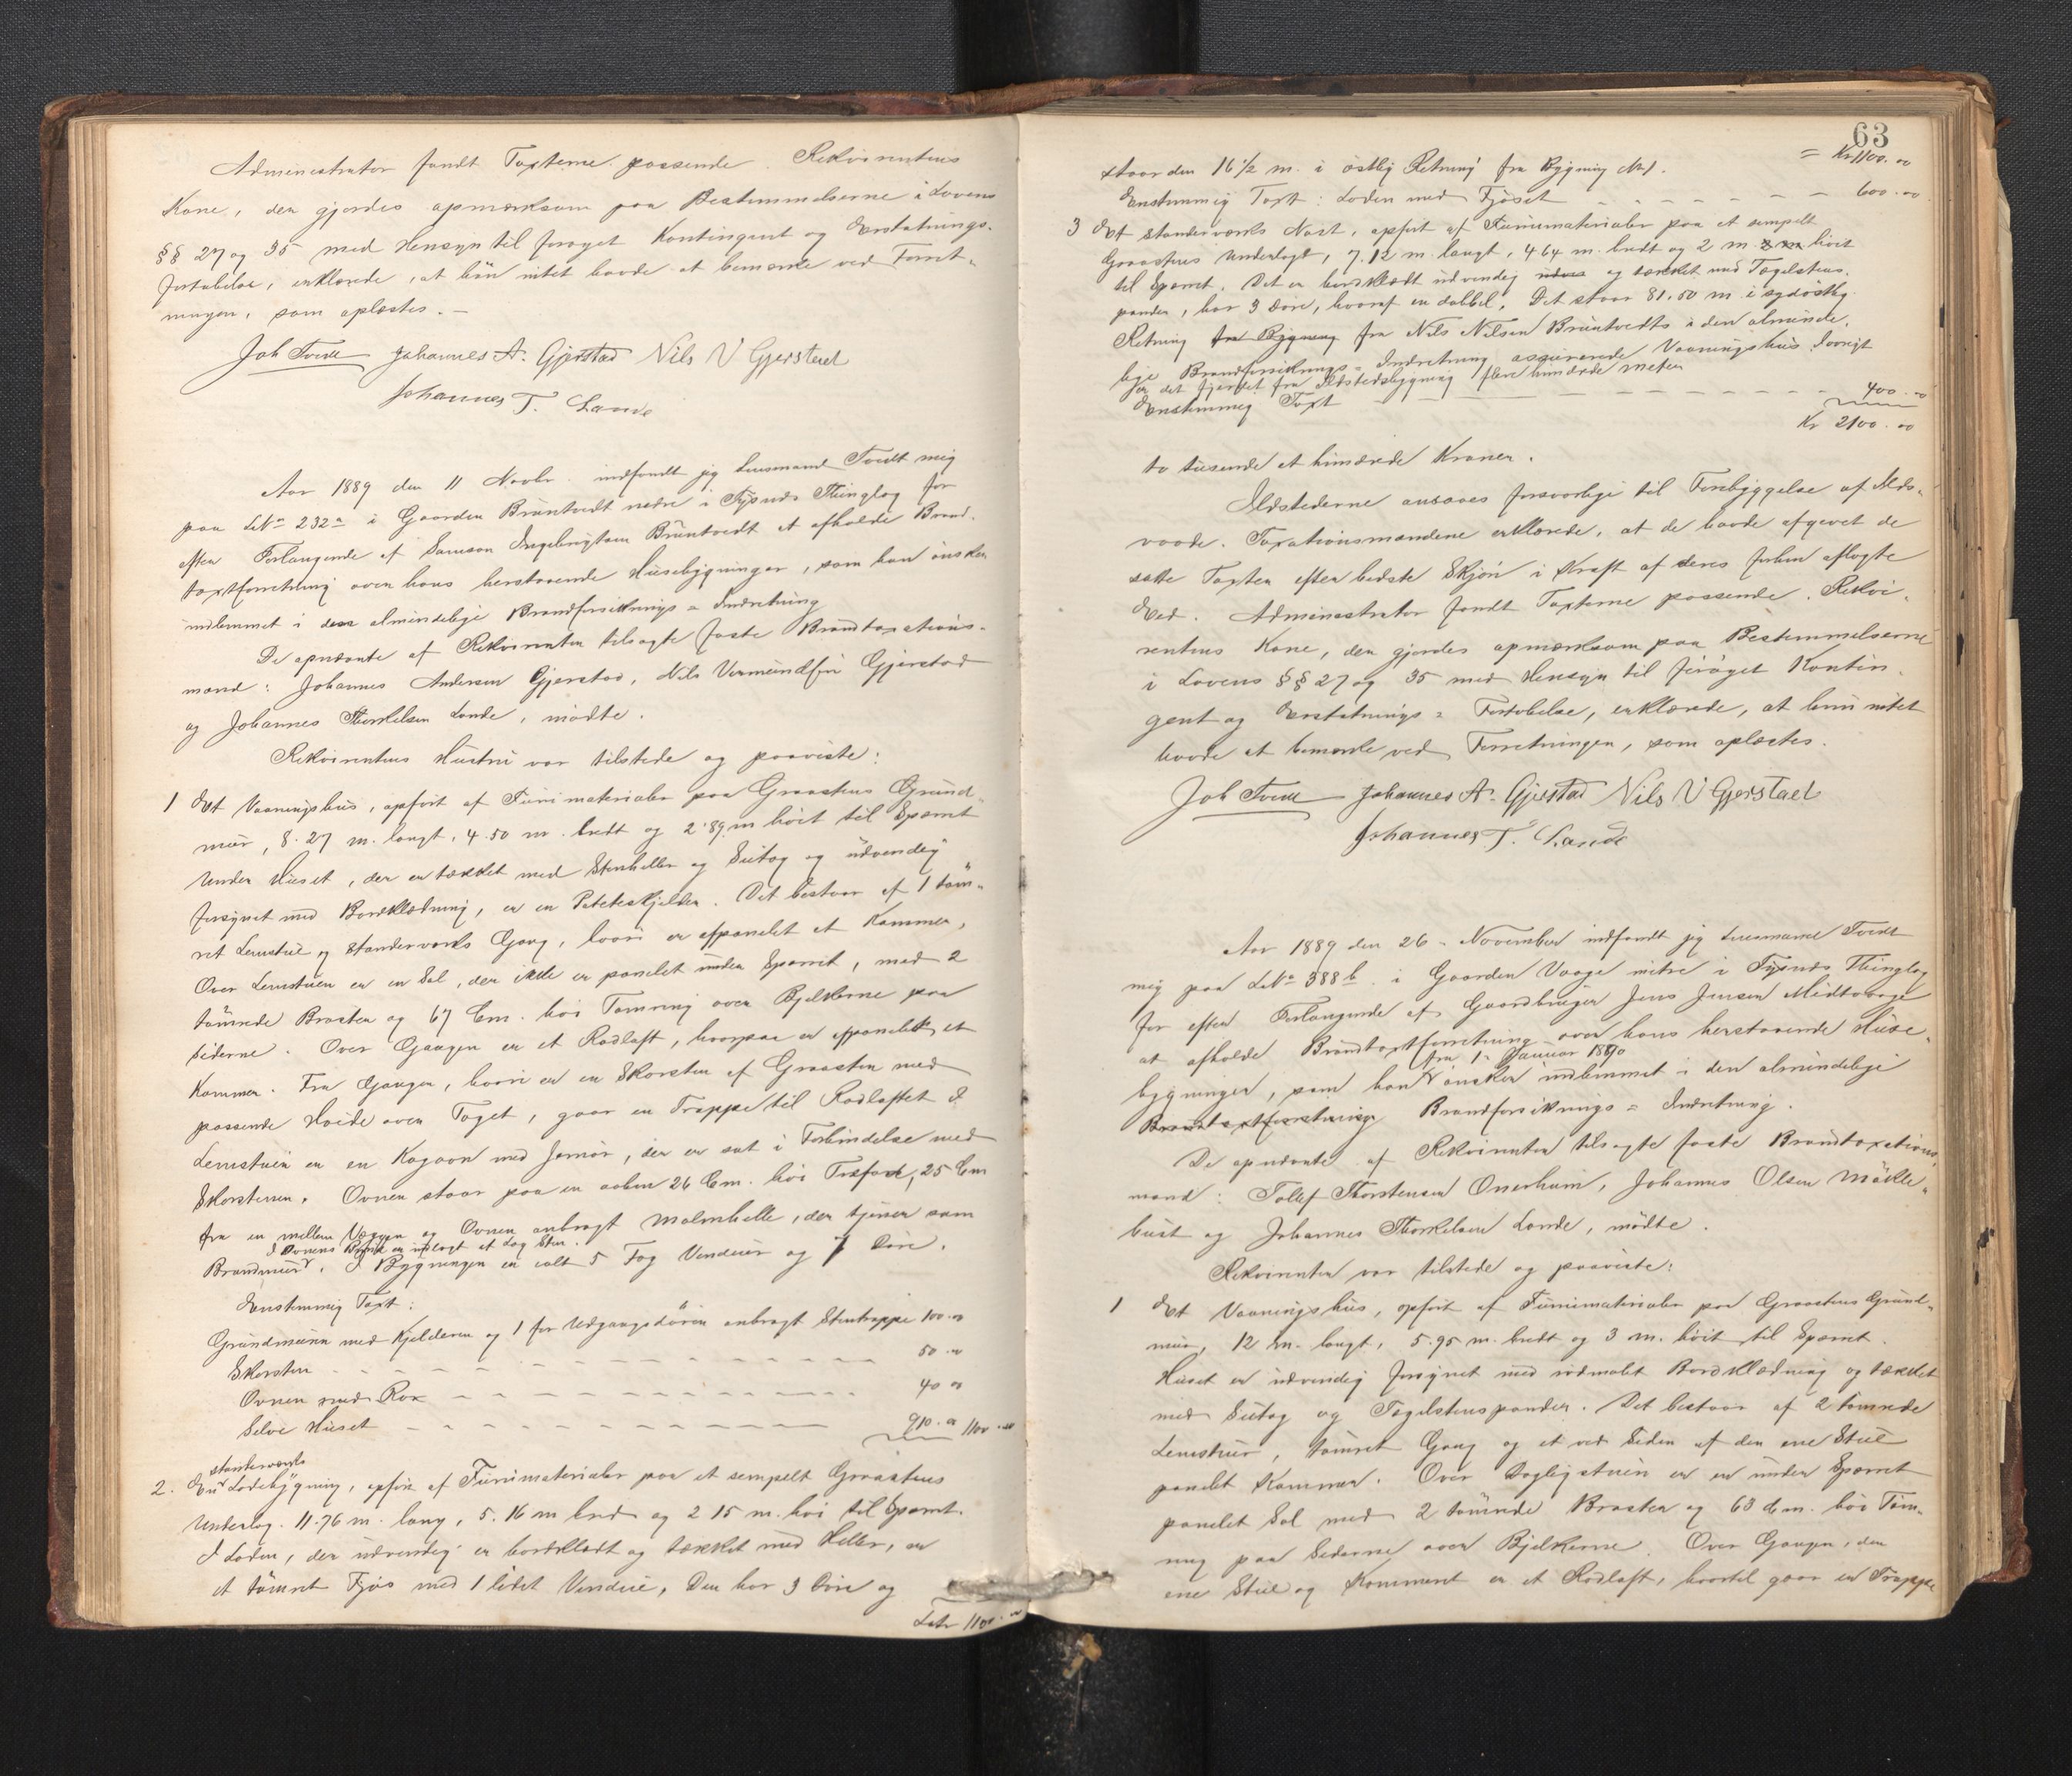 Administrator fandt Taxterne passende. Rekvirentens
Kone, der gjordes opmærksom paa Bestemmelserne i Lovens
§§ 27 og 35 med Hensyn til forøget Kontingent og Erstatnings-
fortabelse, erklærede, at hün intet havde at bemærke ved Forret-
ningen, som oplæstes. —
Joh Tvedt Johannes A. Gjerstad Nils V Gjerstad
Johannes T. Lande
Aar 1889 den 11 Novbr. indfandt jeg Lensmand Tvedt mig
paa LNo 232a i Gaarden Brüntvedt nedre i Tysnæs Thinglag for
efter Forlangende af Samson Ingebrigtsen Brüntvedt at afholde Brand-
taxtforretning over hans herstaaende Hüsebygninger, som han ønsker
indlemmet i den almindelige Brandforsikrings-Indretning
De opnævnte af Rekvirenten tilsagte faste Brandtaxations-
mænd: Johannes Andersen Gjerstad, Nils Vermündsøn Gjerstad
og Johannes Thorkelsen Lande, mødte.
Rekvirentens Hüstrü var tilstede og paaviste:
1 Et Vaaningshüs, opført af Fürümaterialer paa Graastens Gründ-
müür, 8.27 m. langt, 4.50 m. bredt og 2.89 m høit til Sparret
Under Hüset, der er tækket med Stenheller og Sütag og üdvendig
forsynet med Bordklædning, er en Poteteskjelder. Det bestaar af 1 tøm-
ret Lemstüe og Standerværks Gang, hvori er afpanelet et Kammer,
Over Lemstüen er en Sal, der ikke er panelet ünder Sparret, med 2
tømrede Braster og 67 Cm. høi Tømring over Bjelkerne paa
Siderne. Over Gangen er et Rødloft, hvorpaa er afpanelet et
Kammer. Fra Gangen, hvori er en Skorsten af Graasten med
passende Høide over Taget, gaar en Trappe til Rødloftet I
Lemstüen er en Kogeovn med Jernrør, der er sat i Forbindelse med
Skorstenen. Ovnen staar paa en aaben 26 Cm. høi Træfod, 25 Cm
fra en mellem Væggen og Ovnen anbragt Malmhelle, der tjener som
I Ovnens Bund er indlagt et Lag Sten.
Brandmüür. I Bygningen er ialt 5 Fag Vindüer og 7 Døre.
Enstemmig Taxt:
Gründmüren med Kjelderen og 1 for Udgangsdøren anbragt Stentrappe 100.00
Skorsten - - - - - - - - 50.00
Ovnen med Rør - - - - - - - 40 00
Selve Hüset - - - - - - - 910.00 1100.00
standerværks
2. En Ladebygning, opført af Fürümaterialer paa et simpelt Graastens
Underlag. 11.76 m. lang, 5.16 m bred og 2 15 m. høi til Sparret.
I Laden, der üdvendig er bordklædt og tækket med Heller, er
et tømret Fjøs med 1 lidet Vindüe, Den har 3 Døre og
Latr 1100.00
63
= Kr 1100.00
staar den 16 1/2 m. i østlig Retning fra Bygning No 1.
Enstemmig Taxt: Laden med Fjøset - - - - - - 600.00
3 Et standerværks Nøst, opført af Fürümaterialer paa et simpelt
Graastens Underlagt, 7.12 m langt, 4 64 m. bredt og 2 m høit
til Sparret. Det er bordklædt üdvendig og tækket med Tagelstens-
pander, har 3 Døre, hvoraf en dobbel. Det staar 81,50 m. i sydøstlig
Retning fra Bygning fra Nils Nilsen Brüntvedts i den alminde-
lige Brandforsikrings-Indretning assürerede Vaaningshüs. Forøvrigt
er det fjernet fra Ildstedsbygning flere hündrede meter
Enstemmig Taxt - - - - - - - - 400.00
Kr 2100.00
to tüsende et hündrede Kroner.
Ildstederne ansaaes forsvarlige til Forebyggelse af Ilds-
vaade. Taxationsmændene erklærede, at de havde afgivet de
satte Taxter efter bedste Skjøn i Kraft af deres forhen aflagte
Ed. Administrator fandt Taxterne passende. Rekvi-
rentens Kone, der gjordes opmærksom paa Bestemmelserne
i Lovens §§ 27 og 35 med Hensyn til forøget Kontin-
gent og Erstatnings-Fortabelse, erklærede, at hün intet
havde at bemærke ved Forretningen, som oplæstes.
Joh Tvedt Johannes A. Gjerstad Nils V Gjerstad
Johannes T. Lande
Aar 1889 den 26. November indfandt jeg Lensmand Tvedt
mig paa LNo 388b. i Gaarden Vaage midtre i Tysnæs Thinglag
for efter Forlangende af Gaardbrüger Jens Jensen Midtvaage
at afholde Brandtaxtforretning over hans herstaaende Hüse-
fra 1. Januar 1890
bygninger, som han ønsker indlemmet i den almindelige
Brandtaxtforretning Brandforsikrings-Indretning.
De opnævnte af Rekvirenten tilsagte faste Brandtaxations-
mænd: Tollef Thorstensen Onerheim, Johannes Olsen Møkle-
büst og Johannes Thorkelsen Lande, mødte.
Rekvirenten var tilstede og paaviste:
1 Et Vaaningshüs, opført af Fürümaterialer paa Graastens Gründ-
müür, 12 m. langt, 5.95 m. bredt og 3 m. høit til Sparret.
Hüset er üdvendig forsynet med rødmalet Bordklædning og tækket
med Sütag og Tagelstenspander. Det bestaar af 2 tømrede
Lemstüer, tømret Gang og et ved Siden af den ene Stüe
panelet Kammer. Over Dagligstüen er en ünder Sparret
panelet Sal med 2 tømrede Braster og 63 Cm. høi Tøm-
ring paa Siderne over Bjelkerne. Over Gangen, den
ene Stüe og Kammeret er et Rødloft, hvortil gaar en Trappe